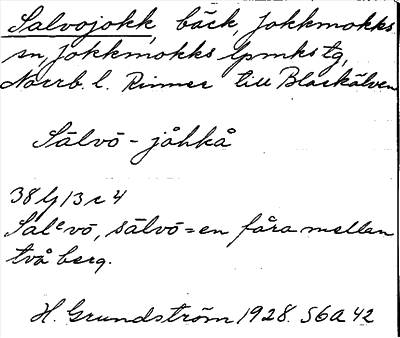 Salvojokk, bäck, Jokkmokks
sn, Jokkmokks lpmks tg,
Norrb. l. Rinner till Blackälven
Sālvō - jåhkå
38 G 13 c 4
Salᵉvō, sālvō = en fåra mellan
två berg.
H. Grundström 1928. 56A 42